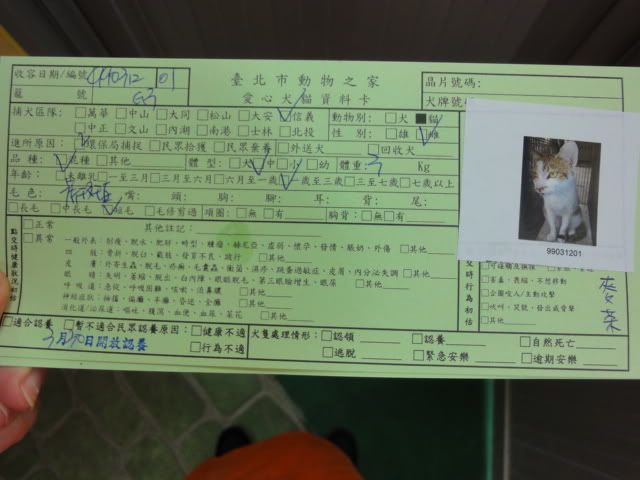 收容日期/編號 01
臺北市動物之家
晶片號碼:
籠 號
愛心犬貓資料卡
犬牌號
捕犬區隊: □萬華 □中山 □大同 □松山 □大安 □信義 動物別: □犬 ■貓
□中正 □文山 □內湖 □南港 □士林 □北投 性 別: □雄 □雌
進所原因: □環保局捕捉 □民眾拾獲 □民眾棄養 □外送犬 □回收犬
品種: □混種 □其他 體 型: □大 □中 □小 □幼 體重: 3 Kg
年齡: □未離乳 □一至三月 □三月至六月 □六月至一歲 □一歲至三歲 □三至七歲 □七歲以上
毛色: 嘴: 頭: 胸: 腳: 耳: 背: 尾:
□長毛 □中長毛 □短毛 □毛修剪過 項圈: □無 □有 胸背: □無 □有
99031201
點交時健康狀況初估
□正常
其他註記:
□異常
一般外表: 削瘦、脫水、肥胖、畸型、腫瘤、赫尼亞、虛弱、懷孕、發情、脹奶、外傷 □其他
四 肢: 骨折、脫臼、截肢、發育不良、跛行 □其他
皮 膚: 外寄生蟲、脫毛、疥癬、毛囊蟲、黴菌、濕疹、跳蚤過敏症、皮屑、內分泌失調 □其他
眼 睛: 失明、萎縮、脫出、白內障、眼瞼脫毛、第三眼瞼增生、眼屎 □其他
呼吸道: 急促、呼吸困難、咳嗽、流鼻膿 □其他
神經症狀: 抽搐、偏癱、半癱、昏迷、全癱 □其他
消化道/泌尿道: 嘔吐、腹瀉、血便、血尿、菜花 □其他
交時行為初估
□可碰觸與撫摸
□害羞、畏縮、不想移動
□企圖咬人/主動攻擊
□吠叫、哭號、發出威脅聲
□其他
□適合認養 □暫不適合民眾認養原因: □健康不適
□行為不適
3月20日開放認養
犬隻處理情形: □認領 □認養 □自然死亡
□逃脫 □緊急安樂 □逾期安樂